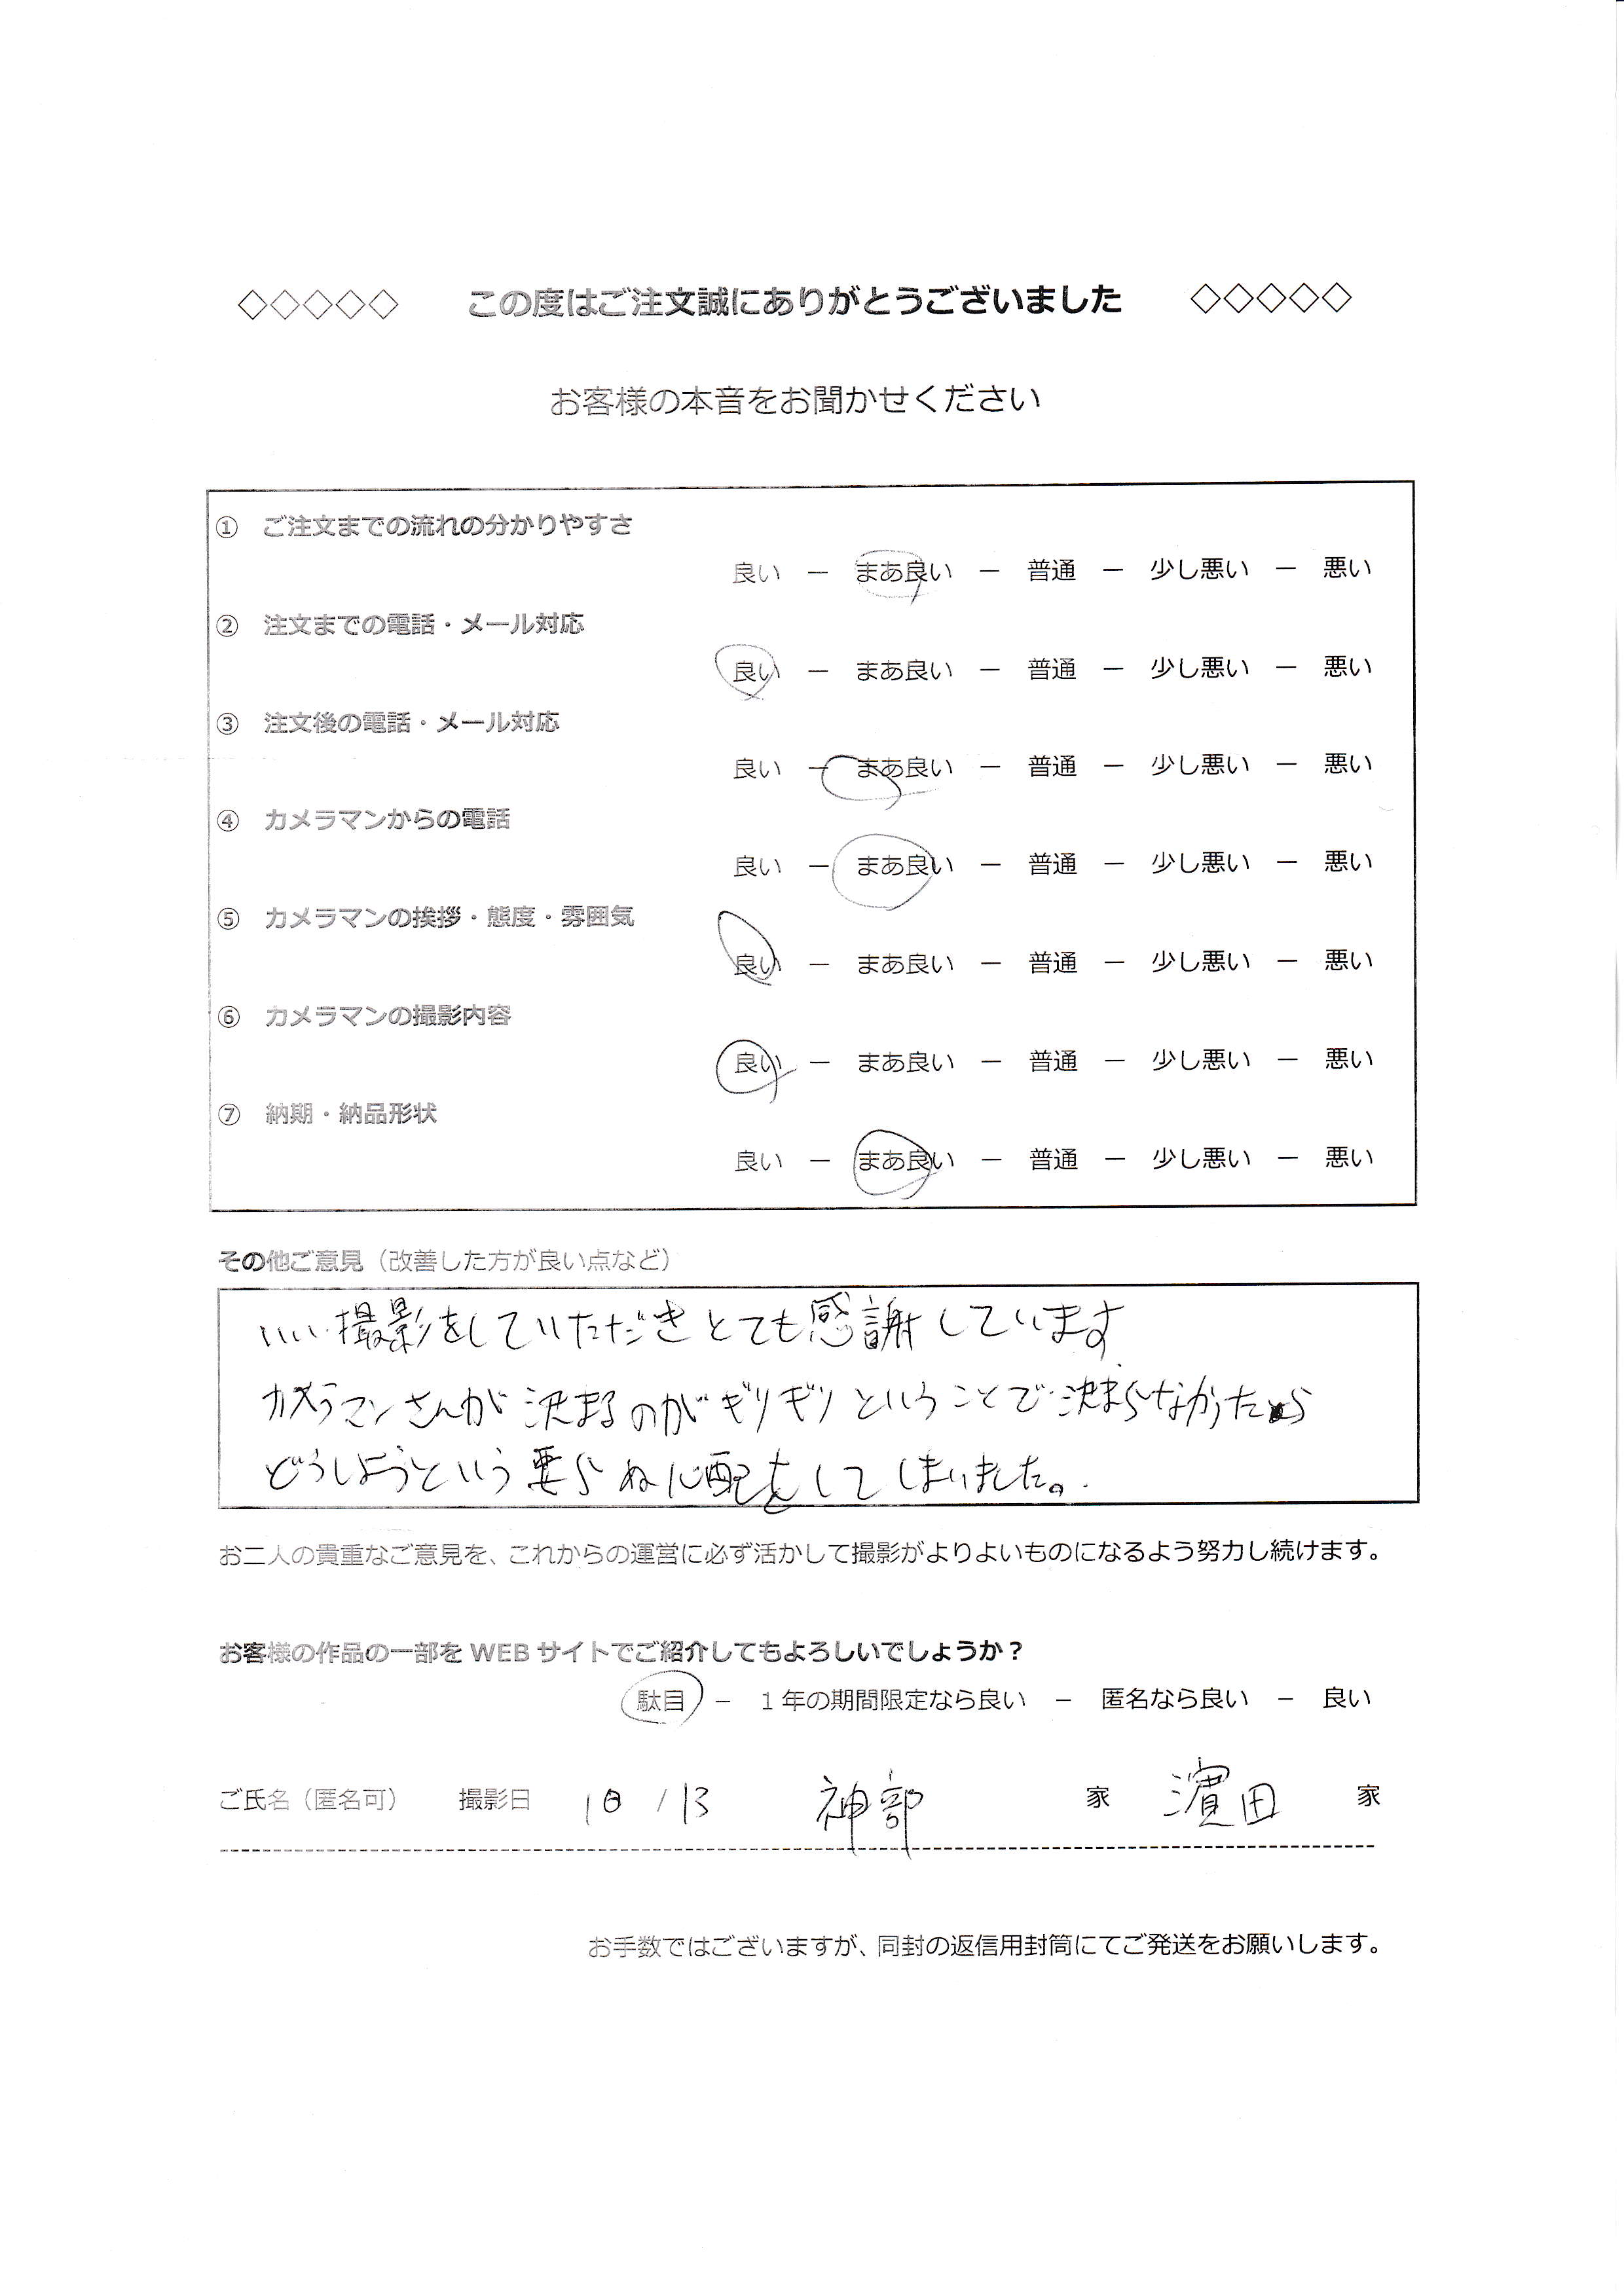 ◇◇◇◇◇ この度はご注文誠にありがとうございました ◇◇◇◇◇
お客様の本音をお聞かせください
① ご注文までの流れの分かりやすさ
良い － まあ良い － 普通 － 少し悪い － 悪い
② 注文までの電話・メール対応
良い － まあ良い － 普通 － 少し悪い － 悪い
③ 注文後の電話・メール対応
良い － まあ良い － 普通 － 少し悪い － 悪い
④ カメラマンからの電話
良い － まあ良い － 普通 － 少し悪い － 悪い
⑤ カメラマンの挨拶・態度・雰囲気
良い － まあ良い － 普通 － 少し悪い － 悪い
⑥ カメラマンの撮影内容
良い － まあ良い － 普通 － 少し悪い － 悪い
⑦ 納期・納品形状
良い － まあ良い － 普通 － 少し悪い － 悪い
その他ご意見（改善した方が良い点など）
いい撮影をしていただきとても感謝しています
カメラマンさんが決まるのがギリギリということで決まらなかったら
どうしようという要らぬ心配をしてしまいました。
お二人の貴重なご意見を、これからの運営に必ず活かして撮影がよりよいものになるよう努力し続けます。
お客様の作品の一部を WEB サイトでご紹介してもよろしいでしょうか？
駄目 － 1 年の期間限定なら良い － 匿名なら良い － 良い
ご氏名（匿名可） 撮影日 10 / 13 神部 家 濱田 家
お手数ではございますが、同封の返信用封筒にてご発送をお願いします。